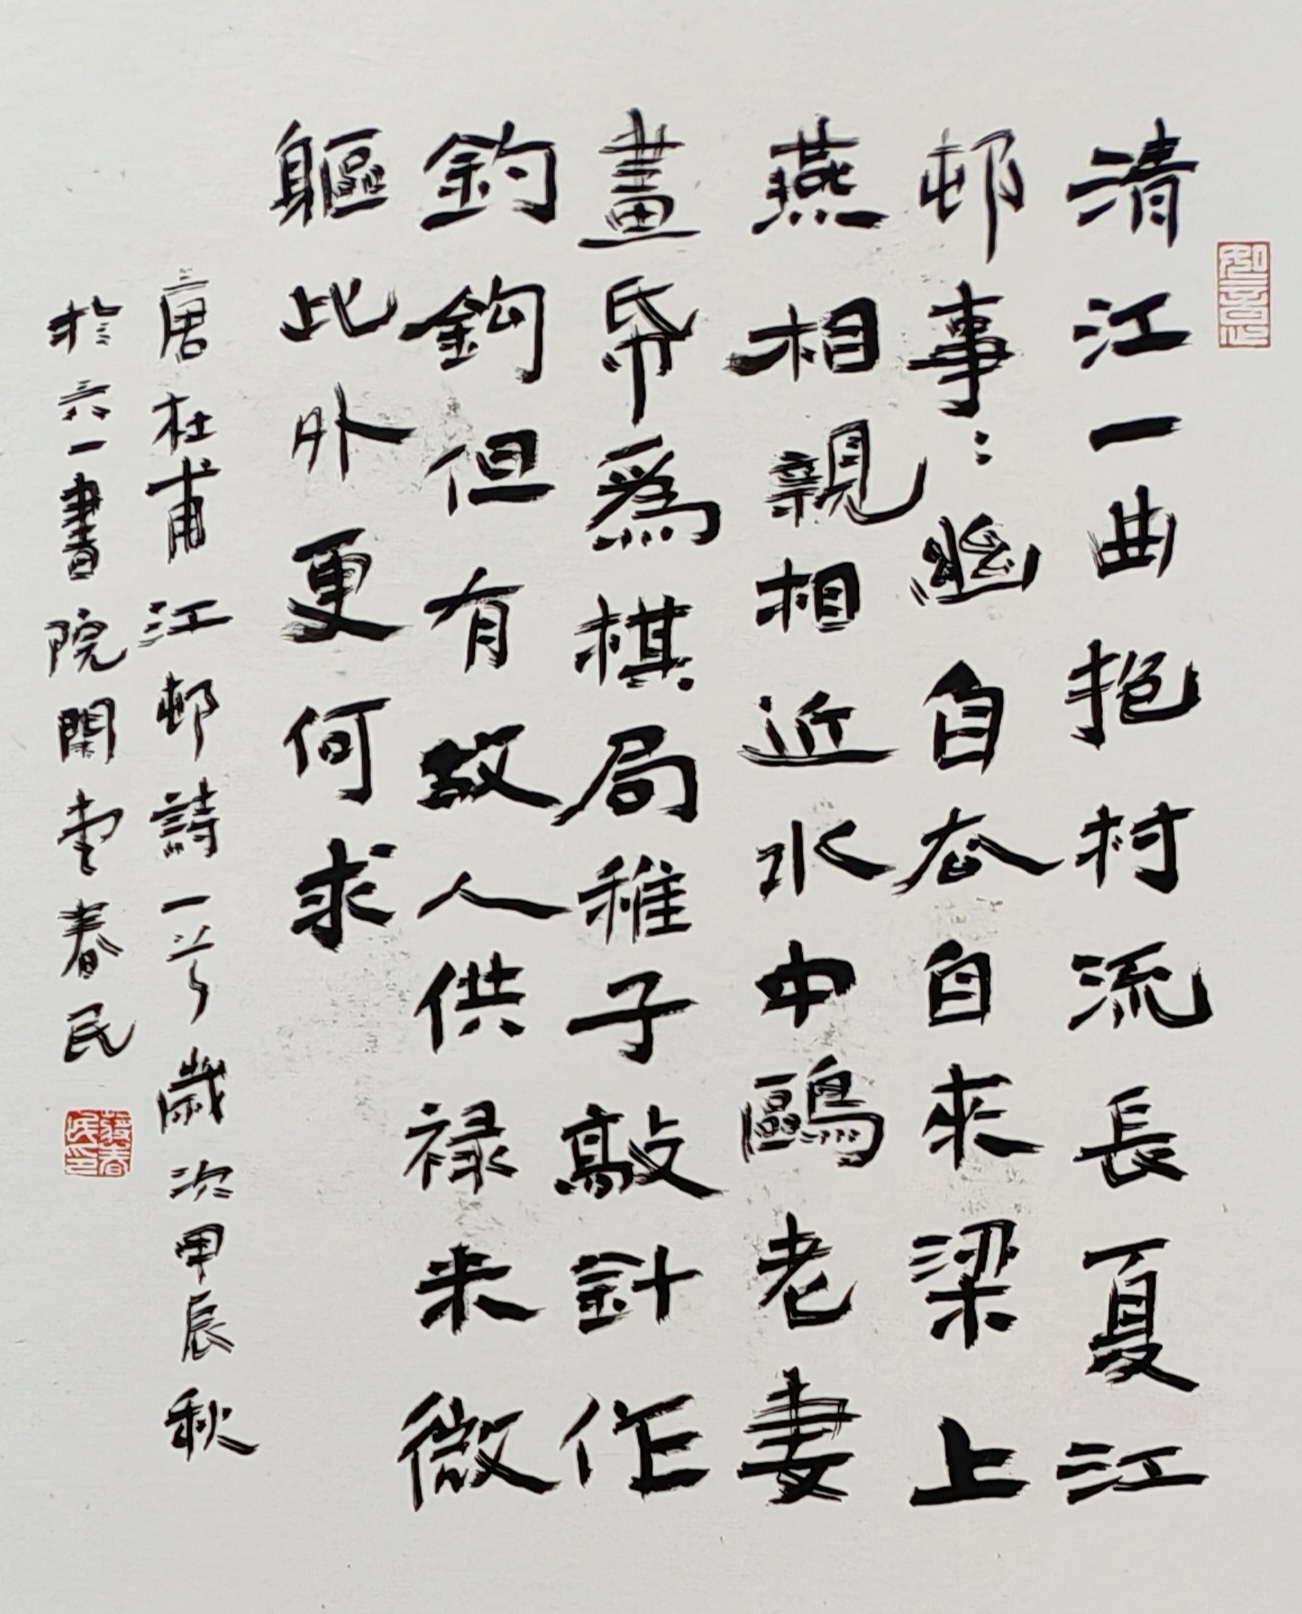 清江一曲抱村流長夏江
邨事〻幽自厺自來梁上
燕相親相近水中鷗老妻
畫帋爲棋局稚子敲針作
釣鈎但有故人供禄米微
軀此外更何求
唐杜甫江邨詩一首歲次甲辰秋
於六一書院閑堂春民
蔣春民印